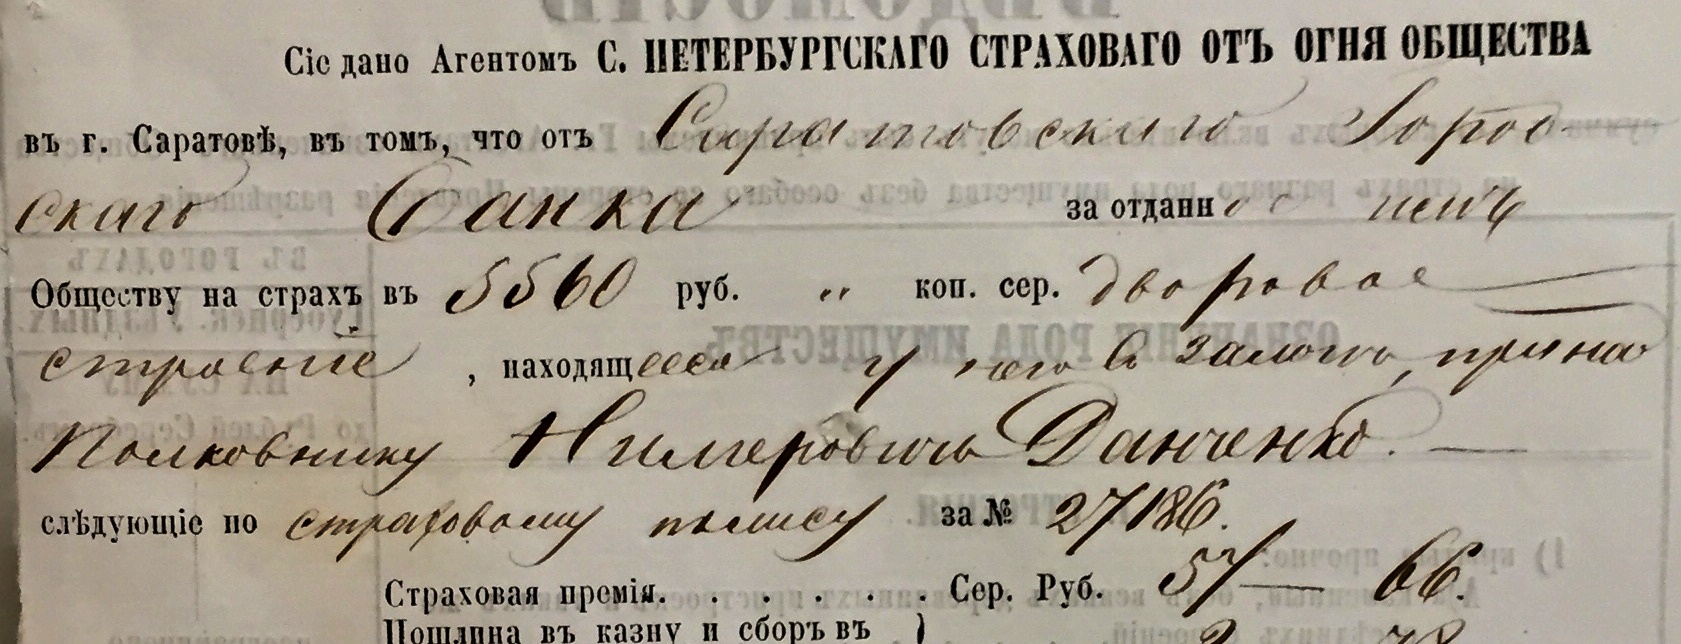 Сіе дано Агентомъ С. ПЕТЕРБУРГСКАГО СТРАХОВАГО ОТЪ ОГНЯ ОБЩЕСТВА
въ г. Саратовѣ, въ томъ, что отъ Саратовскаго Город-
скаго Банка за отданное имъ
Обществу на страхъ въ 5560 руб. „ коп. сер. дворовое
строеніе, находящееся у него в залоге, прина
Полковнику Данченко.
слѣдующіе по страховому полису за № 27186.
Страховая премія. . . . . . . Сер. Руб. 57 — 66.
Пошлина въ казну и сборъ въ